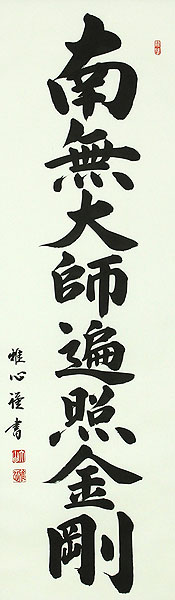 南無大師遍照金剛
惟心謹書